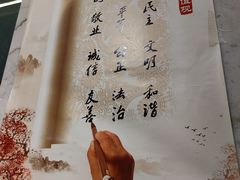 值观
民主 文明 和谐
平 公正 法治
敬业 诚信 友善